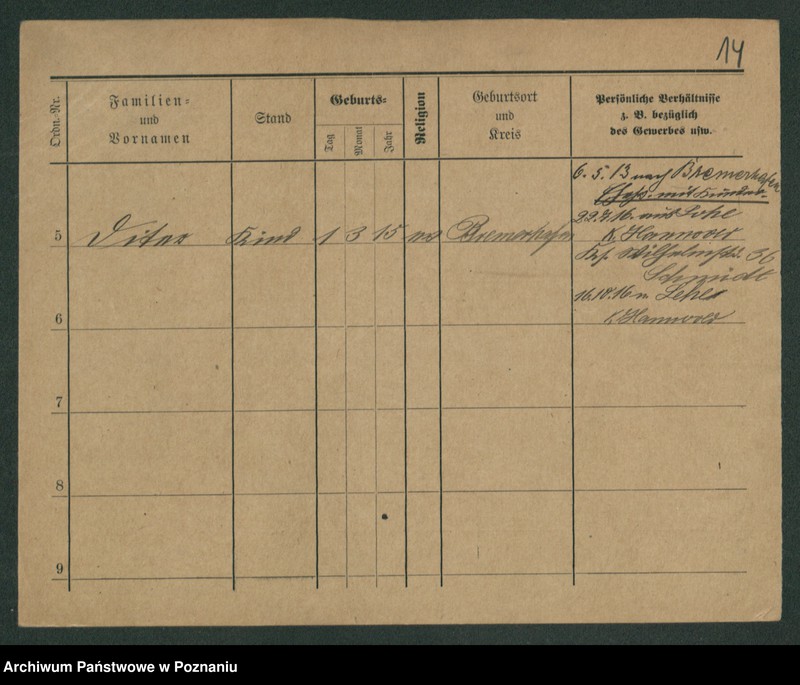 14
Ordn.-Nr.
Familien-
und
Vornamen
Stand
Geburts-
Tag
Monat
Jahr
Religion
Geburtsort
und
Kreis
Persönliche Verhältnisse
z. B. bezüglich
des Gewerbes usw.
6. 5. 13 nach Bremerhafen
mit Kinder
5 Diter Kind 1 3 15 Bremerhafen
22.7.16. aus Lehe
K. Hannover
Wilhelmstr. 36
Schmidt
16.10.16 n. Lehe
K. Hannover
6
7
8
9
Archiwum Państwowe w Poznaniu